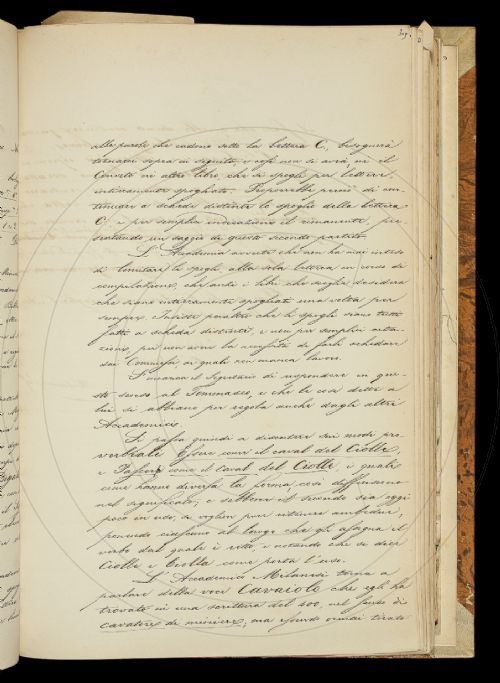 309.
alle parole che cadono sotto la lettera C, bisognerà
tornarci sopra in seguito, e così non si avrà, nè il
Convito nè altro libro, che si spogli per lettere,
interamente spogliato. Proporrebbe perciò di con-
tinuare a schede distinte lo spoglio della lettera
C, e per semplice indicazione il rimanente, pre-
sentando un saggio di questo secondo partito.
L'Accademia avverte che non ha mai inteso
di limitare lo spoglio alla sola lettera in corso di
compilazione, che anzi i libri che spoglia desidera
che siano interamente spogliati una volta per
sempre. Insiste peraltro che lo spoglio siano tutti
fatti a schede distinte, e non per semplice cita-
zione, per non avere la necessità di farli schedare
dai Commessi, ai quali non manca lavoro.
S'incarica il Segretario di rispondere in que-
sto senso al Tommaseo, e che le cose dette a
lui si abbiano per regola anche dagli altri
Accademici.
Si passa quindi a discutere sui modi pro-
verbiali Essere come il caval del Ciolle,
e Pascersi come il caval del Ciolle, i quali
come hanno diversa la forma, così differiscono
nel significato, e sebbene il secondo sia oggi
poco in uso, si voglion pure ritenere ambedue,
ponendo ciascuno al luogo che gli assegna il
verbo dal quale è retto, e notando che si dice
Ciolle e Ciolla come porta l'uso.
L'Accademico Milanesi torna a
parlare della voce Cavaiolo che egli ha
trovato in una scrittura del 400, nel senso di
cavatore di miniere, ma essendo quindi tirato